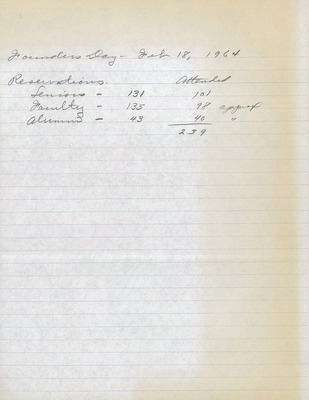 Founders Day - Feb 18, 1964
Reservations. Attended
Seniors - 131 101
Faculty - 135 98 approx
Alumni - 43 40 "
239